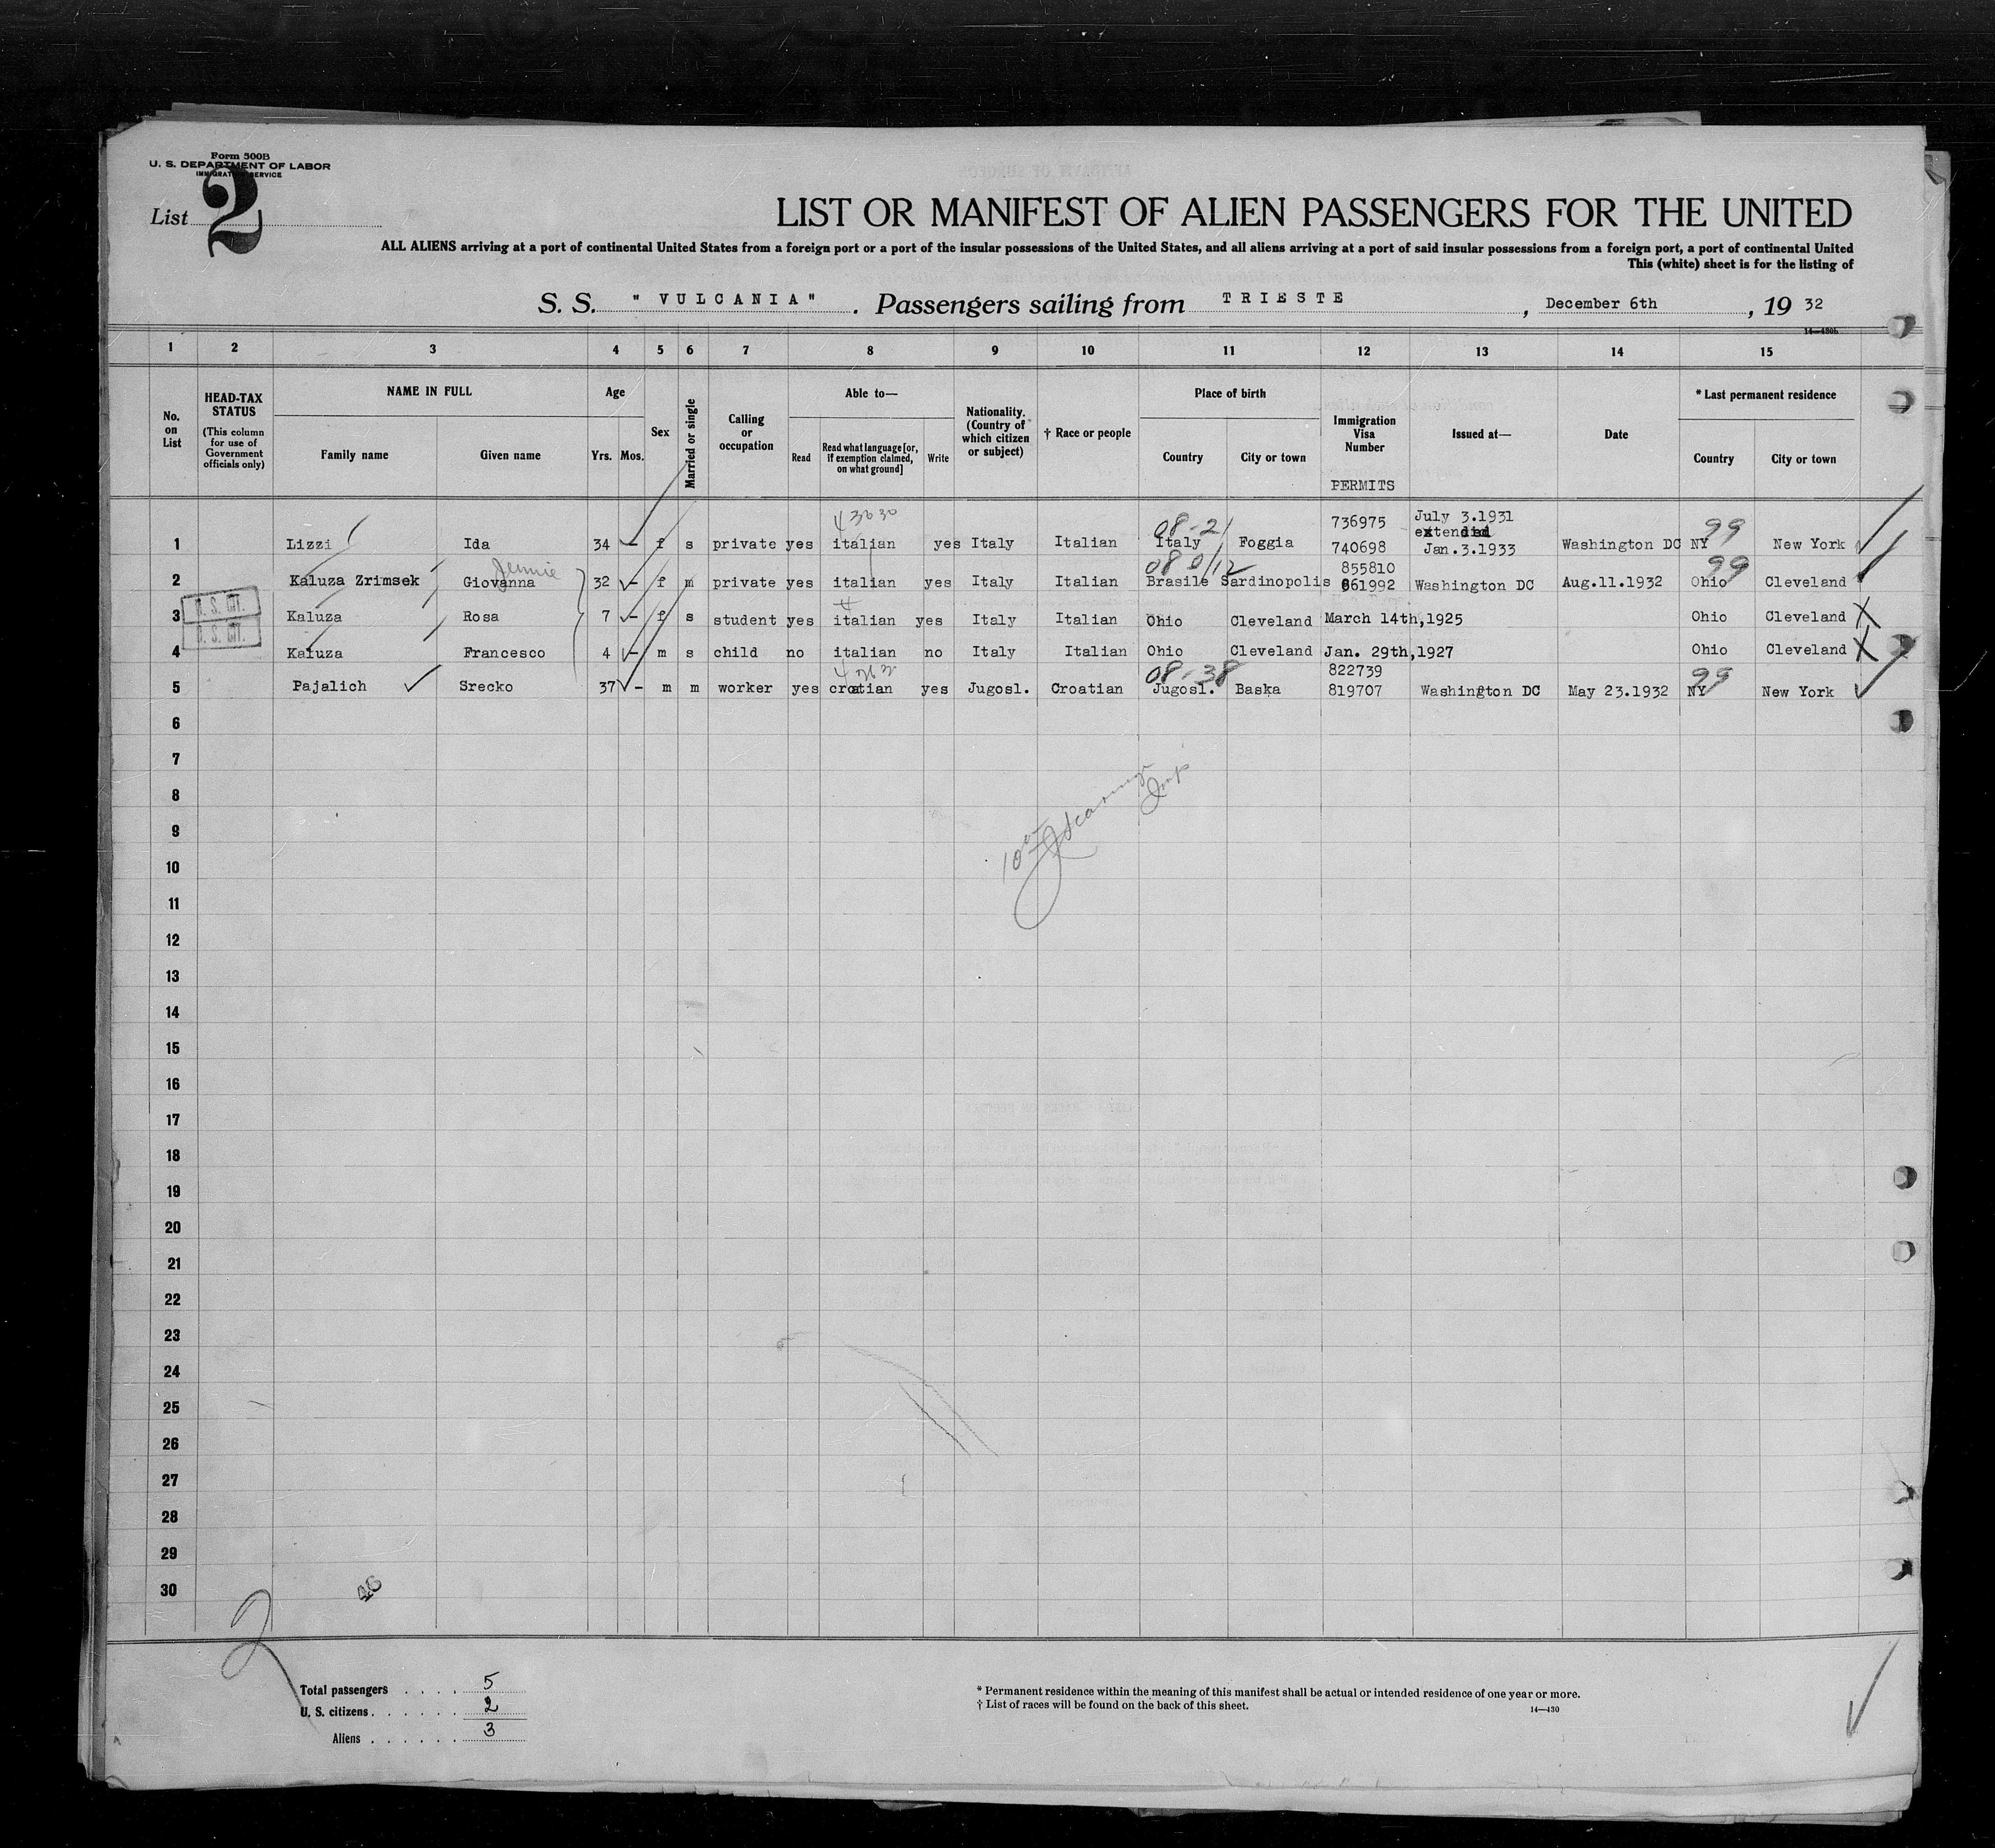 Form 500B
U. S. DEPARTMENT OF LABOR
IMMIGRATION SERVICE
List 2
LIST OR MANIFEST OF ALIEN PASSENGERS FOR THE UNITED
ALL ALIENS arriving at a port of continental United States from a foreign port or a port of the insular possessions of the United States, and all aliens arriving at a port of said insular possessions from a foreign port, a port of continental United
This (white) sheet is for the listing of
S. S. " VULCANIA " . Passengers sailing from TRIESTE , December 6th , 19 32
14—430b
1 2 3 4 5 6 7 8 9 10 11 12 13 14 15
No. on List
HEAD-TAX STATUS (This column for use of Government officials only)
NAME IN FULL
Family name Given name
Age
Yrs. Mos.
Sex
Married or single
Calling or occupation
Able to—
Read Read what language [or, if exemption claimed, on what ground] Write
Nationality. (Country of which citizen or subject)
† Race or people
Place of birth
Country City or town
Immigration Visa Number
PERMITS
Issued at—
Date
* Last permanent residence
Country City or town
4 3030 08-21 736975 July 3.1931 99
extended
1 Lizzi Ida 34 – f s private yes italian yes Italy Italian Italy Foggia 740698 Jan.3.1933 Washington DC NY New York
Jennie 08 0/12 855810 99
2 Kaluza Zrimsek Giovanna 32 – f m private yes italian yes Italy Italian Brasile Sardinopolis 861992 Washington DC Aug.11.1932 Ohio Cleveland
U. S. CIT.
3 Kaluza Rosa 7 – f s student yes italian yes Italy Italian Ohio Cleveland March 14th,1925 Ohio Cleveland X
U. S. CIT.
4 Kaluza Francesco 4 – m s child no italian no Italy Italian Ohio Cleveland Jan. 29th,1927 Ohio Cleveland X
08-38 822739 99
5 Pajalich Srecko 37 – m m worker yes croatian yes Jugosl. Croatian Jugosl. Baska 819707 Washington DC May 23.1932 NY New York
6
7
8
9
10
11
12
13
14
15
16
17
18
19
20
21
22
23
24
25
26
27
28
29
30
46
2
Total passengers . . . . 5
U. S. citizens . . . . . . 2
Aliens . . . . . . 3
* Permanent residence within the meaning of this manifest shall be actual or intended residence of one year or more.
† List of races will be found on the back of this sheet.
14—430